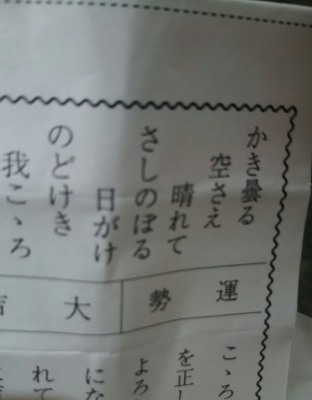 かき曇る
空さえ
晴れて
さしのぼる
日がけ
のどけき
我こゝろ
運勢
大吉
こゝろ
を正し
よろ
にな
れて